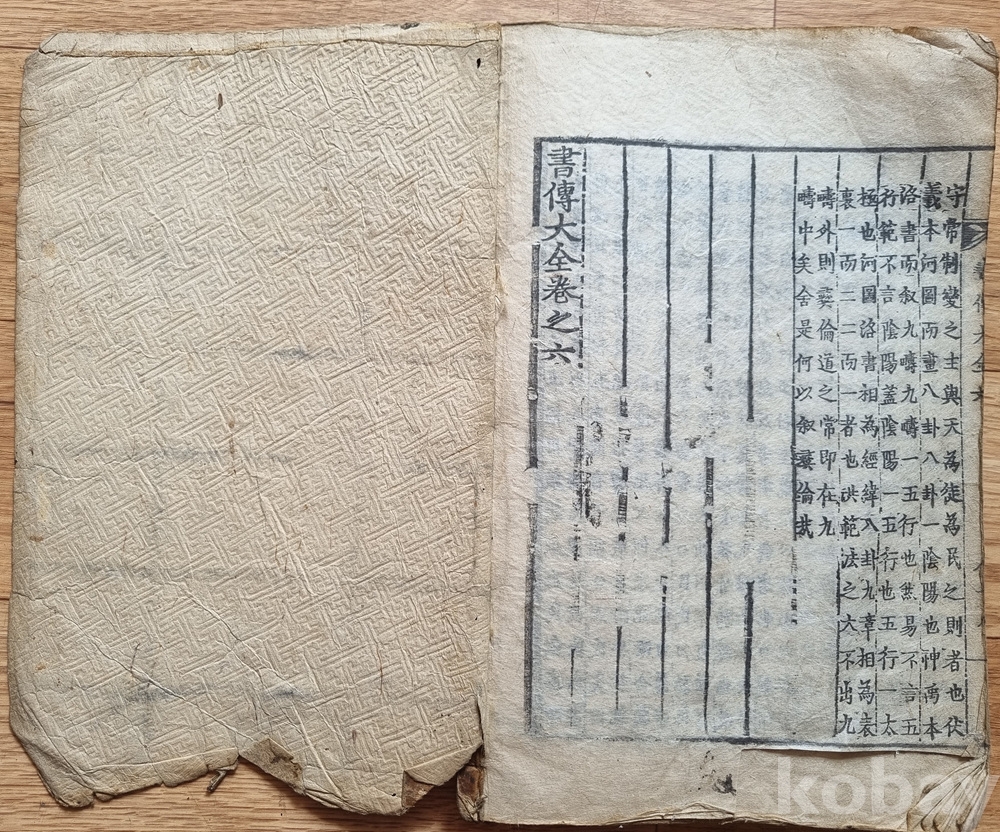 書傳大全六
守常制變之主與天為徒為民之則者也伏
羲本河圖而畫八卦八卦一陰陽也神禹本
洛書而叙九疇九疇一五行也然易不言五
行範不言陰陽蓋陰陽一五行也五行一太
極也河圖洛書相為經緯八卦九章相為表
裏一而二二而一者也洪範法之大不出九
疇外則彛倫道之常即在九
疇中矣舍是何以叙彛倫哉
書傳大全卷之六
kobay